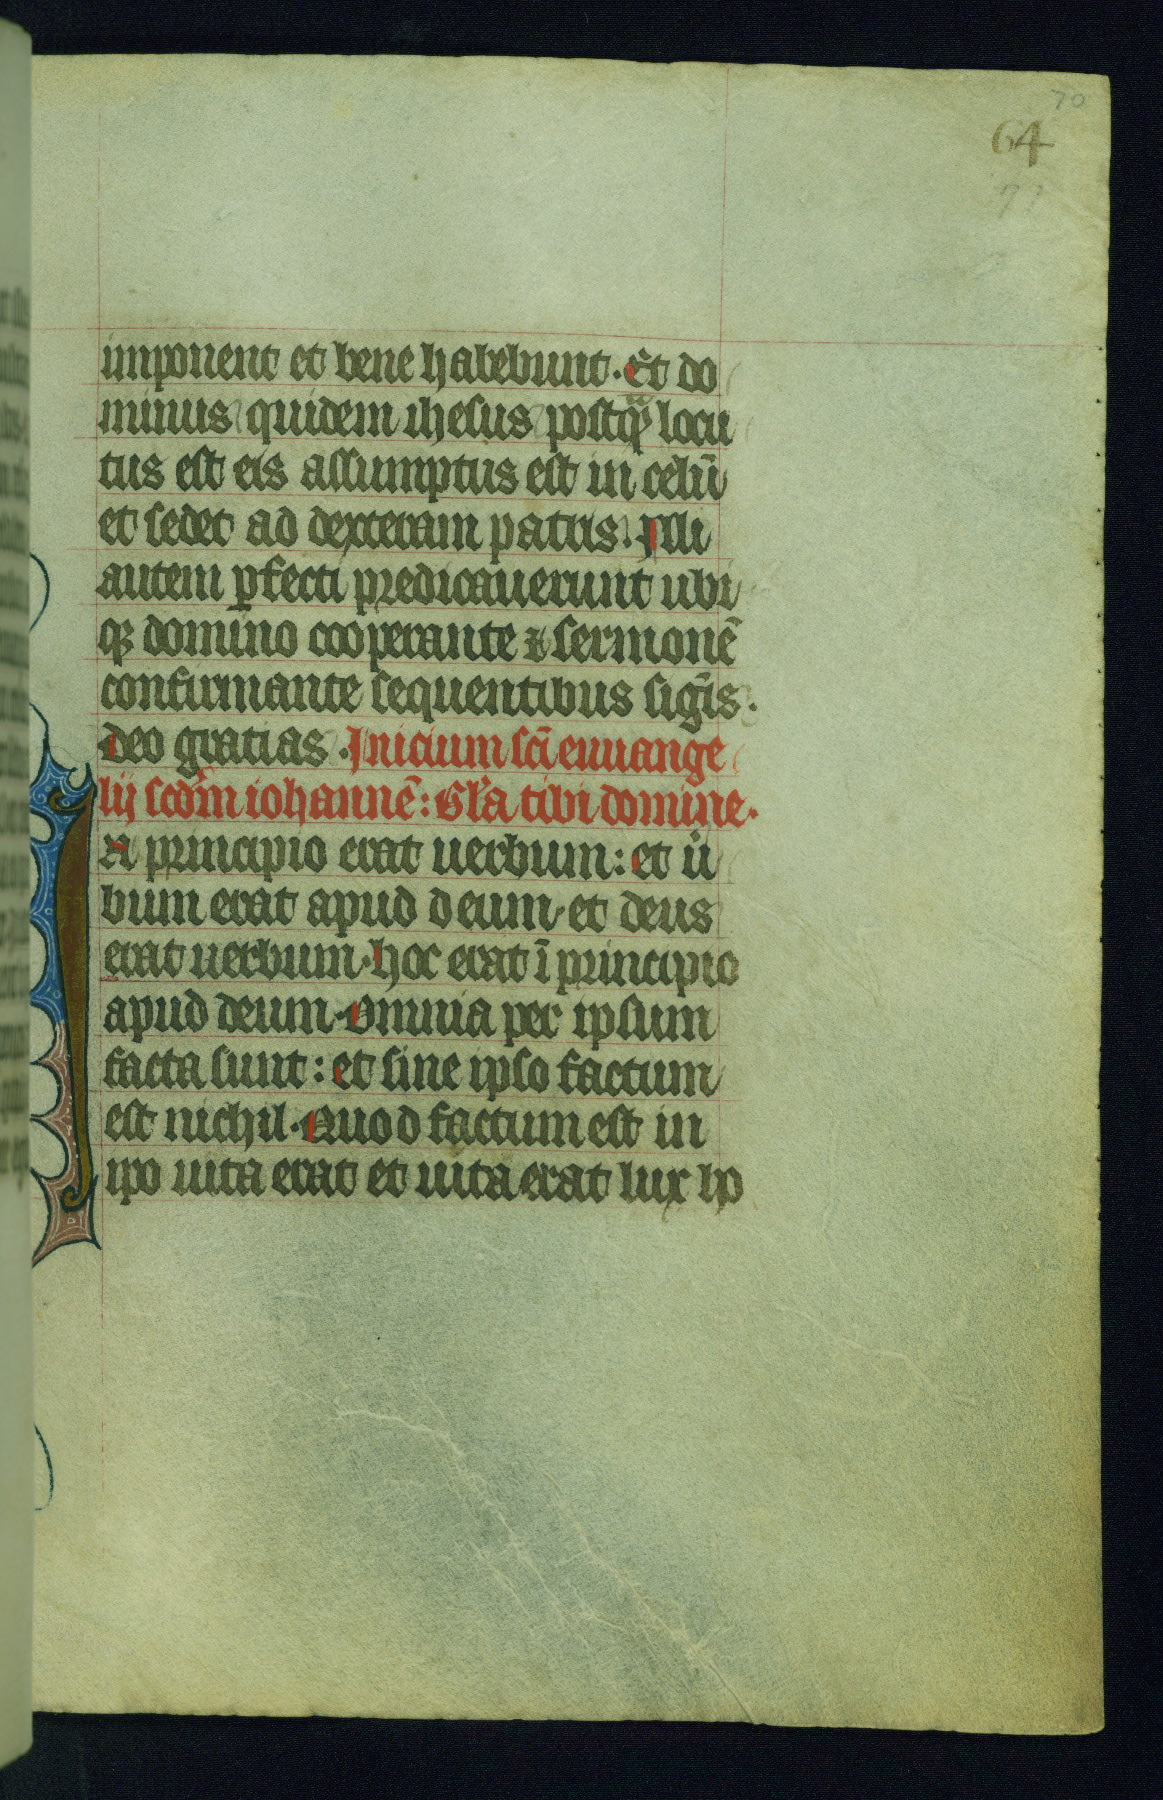 70
64
imponent et bene habebunt. Et do
minus quidem ihesus postqͣ locu
tus est eis assumptus est in celū
et sedet ad dexteram patris. Illi
autem ꝑfecti predicauerunt ubi
qꝫ domino cooperante ⁊ sermonē
confirmante sequentibus siḡis.
deo gratias. Inicium sc̄i euuange
lij scd̄m iohannē: Gl̄a tibi domine.
In principio erat uerbum: et u̓
bum erat apud deum. et deus
erat uerbum. hoc erat ī principio
apud deum. Omnia per ipsum
facta sunt: et sine ipso factum
est nichil. Quod factum est in
ipo uita erat et uita erat lux ip